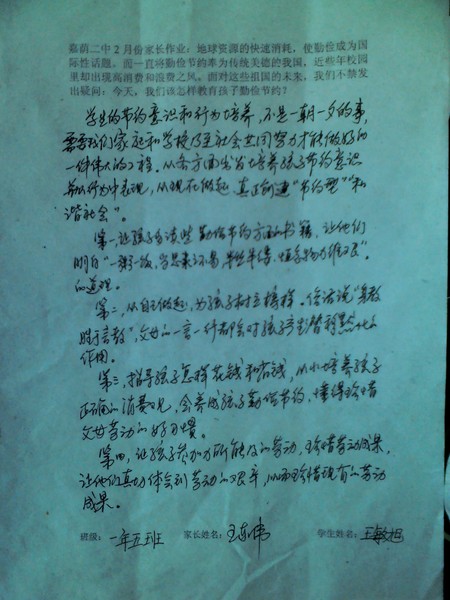 嘉荫二中2月份家长作业：地球资源的快速消耗，使勤俭成为国
际性话题。而一直将勤俭节约奉为传统美德的我国，近些年校园
里却出现高消费和浪费之风。面对这些祖国的未来，我们不禁发
出疑问：今天，我们该怎样教育孩子勤俭节约？
学生的节约意识和行为培养，不是一朝一夕的事，
需要我们家庭和学校乃至社会共同努力才能做好的
一件伟大的工程。从各方面出发培养孩子节约意识
和行为中表现，从现在做起 真正创建“节约型”“和
谐社会”。
第一，让孩子多读些勤俭节约方面的书籍，让他们
明白“一粥一饭，当思来之不易，半丝半缕，恒念物力维艰”。
的道理。
第二，从自己做起，为孩子树立榜样。俗话说“身教
胜于言教”，父母的一言一行都会对孩子产生潜移默化的
作用。
第三，指导孩子怎样花钱和省钱，从小培养孩子
正确的消费观，会养成孩子勤俭节约，懂得珍惜
父母劳动的好习惯。
第四，让孩子参加力所能及的劳动，珍惜劳动成果，
让他们真切体会到劳动的艰辛，从而珍惜现有的劳动
成果。
班级：一年五班 家长姓名：王东伟 学生姓名：王敏旭